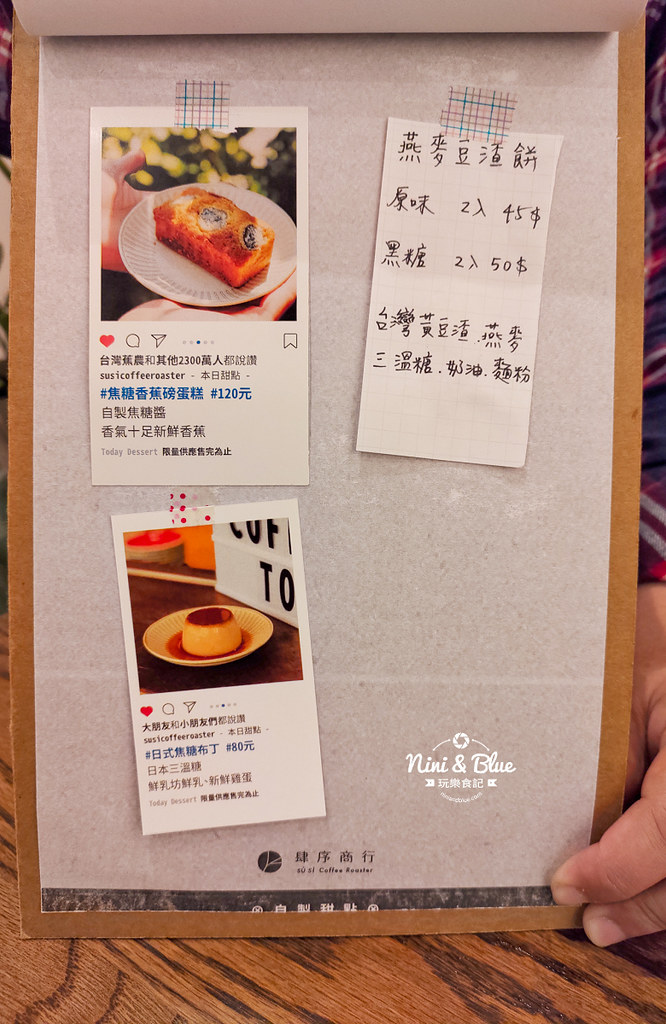 台灣蕉農和其他2300萬人都說讚
susicoffeeroaster - 本日甜點 -
#焦糖香蕉磅蛋糕 #120元
自製焦糖醬
香氣十足新鮮香蕉
Today Dessert 限量供應售完為止
燕麥豆渣餅
原味 2入 45$
黑糖 2入 50$
台灣黃豆渣.燕麥
三溫糖.奶油.麵粉
COFF
TO
大朋友和小朋友們都說讚
susicoffeeroaster - 本日甜點 -
#日式焦糖布丁 #80元
日本三溫糖
鮮乳坊鮮乳、新鮮雞蛋
Today Dessert 限量供應售完為止
Nini & Blue
玩樂食記
niniandblue.com
肆序商行
SÙ SÌ Coffee Roaster
自製甜點